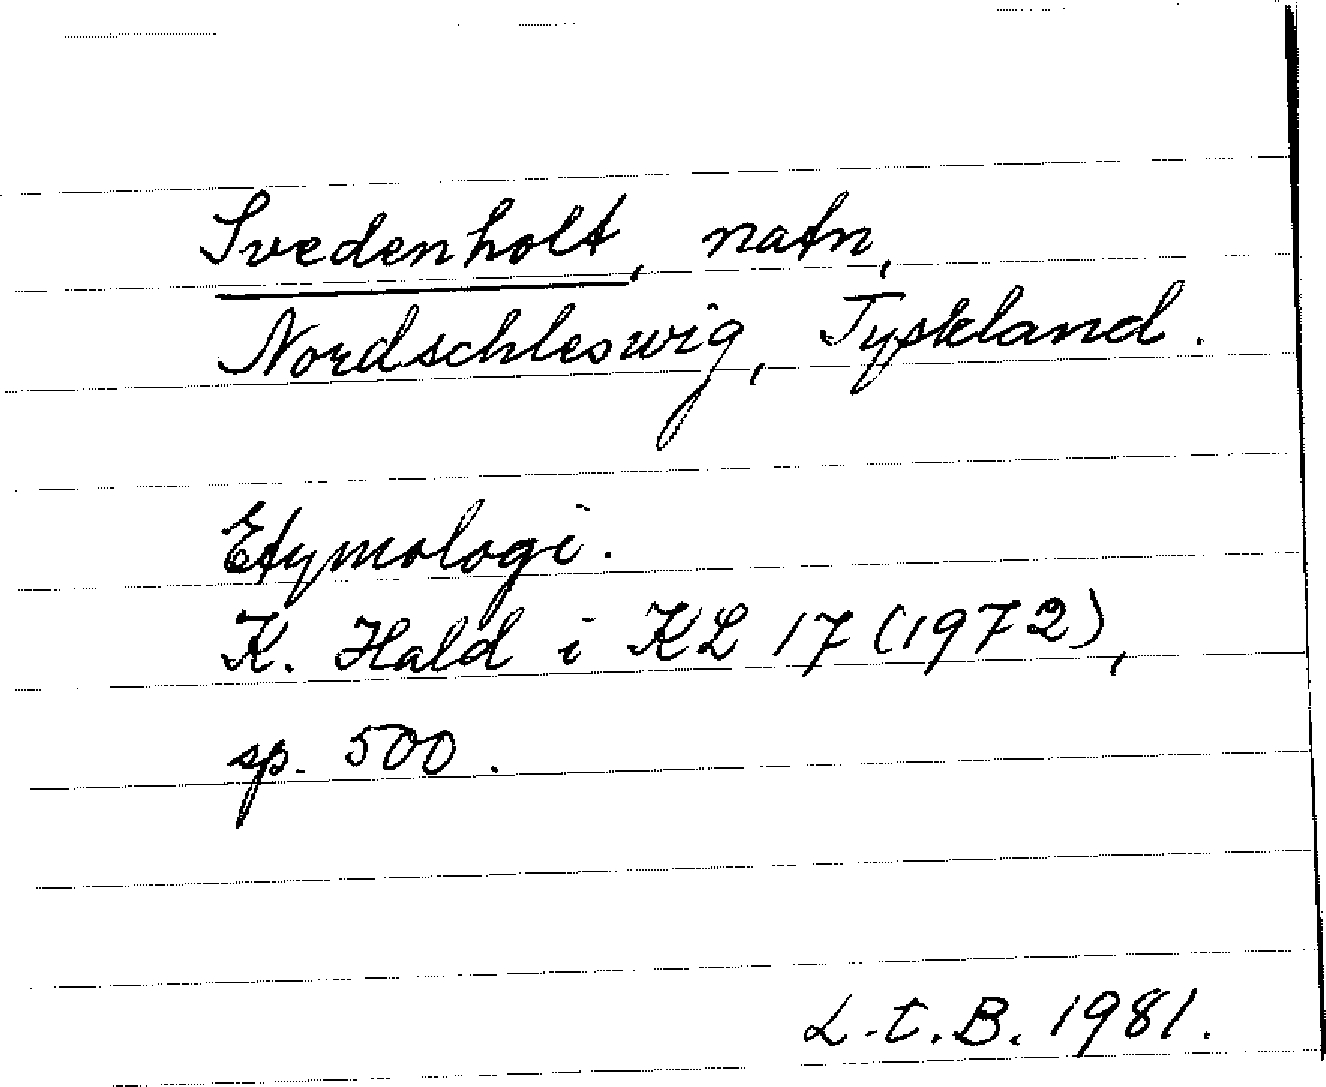 Svedenholt, natn,
Nordschleswig, Tyskland.
Etymologi.
K. Hald i KL 17 (1972),
sp. 500.
L.t.B. 1981.